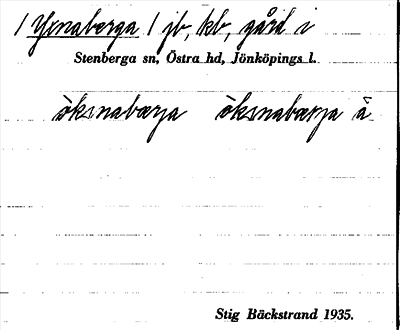 / Yxnaberga / jb, kb, gård i
Stenberga sn, Östra hd, Jönköpings l.
òksnabærja òksnabærja â
Stig Bäckstrand 1935.